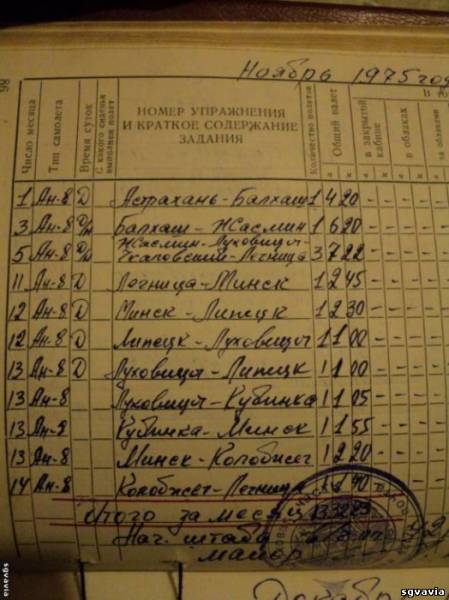 Ноябрь 1975 год
98
Число месяца
Тип самолета
Время суток
С какого сиденья выполнен полет
НОМЕР УПРАЖНЕНИЯ
И КРАТКОЕ СОДЕРЖАНИЕ
ЗАДАНИЯ
Количество полетов
Общий налет
в закрытой кабине
в облаках
за облаками
1 Ан-8 Д Астрахань-Балхаш 1 4 20 - - - - -
3 Ан-8 Д/Н Балхаш-Жасмин 1 6 20 - - - - -
Жасмин-Луховицы-
5 Ан-8 Д/Н Чкаловский-Легница 3 7 22 - - - - -
11 Ан-8 Д Легница-Минск 1 2 45 - - - - -
12 Ан-8 Д Минск-Липецк 1 2 30 - - - - -
12 Ан-8 Д Липецк-Луховицы 1 1 00 - - - - -
13 Ан-8 Д Луховицы-Липецк 1 1 00 - - - - -
13 Ан-8 Луховицы-Кубинка 1 1 05 - - - - -
13 Ан-8 Кубинка-Минск 1 1 55 - - - - -
13 Ан-8 Минск-Колобжег 1 2 20 - - - - -
14 Ан-8 Колобжег-Легница
Итого за месяц
Нач. штаба
майор
Декабрь
sgvavia
sgvavia